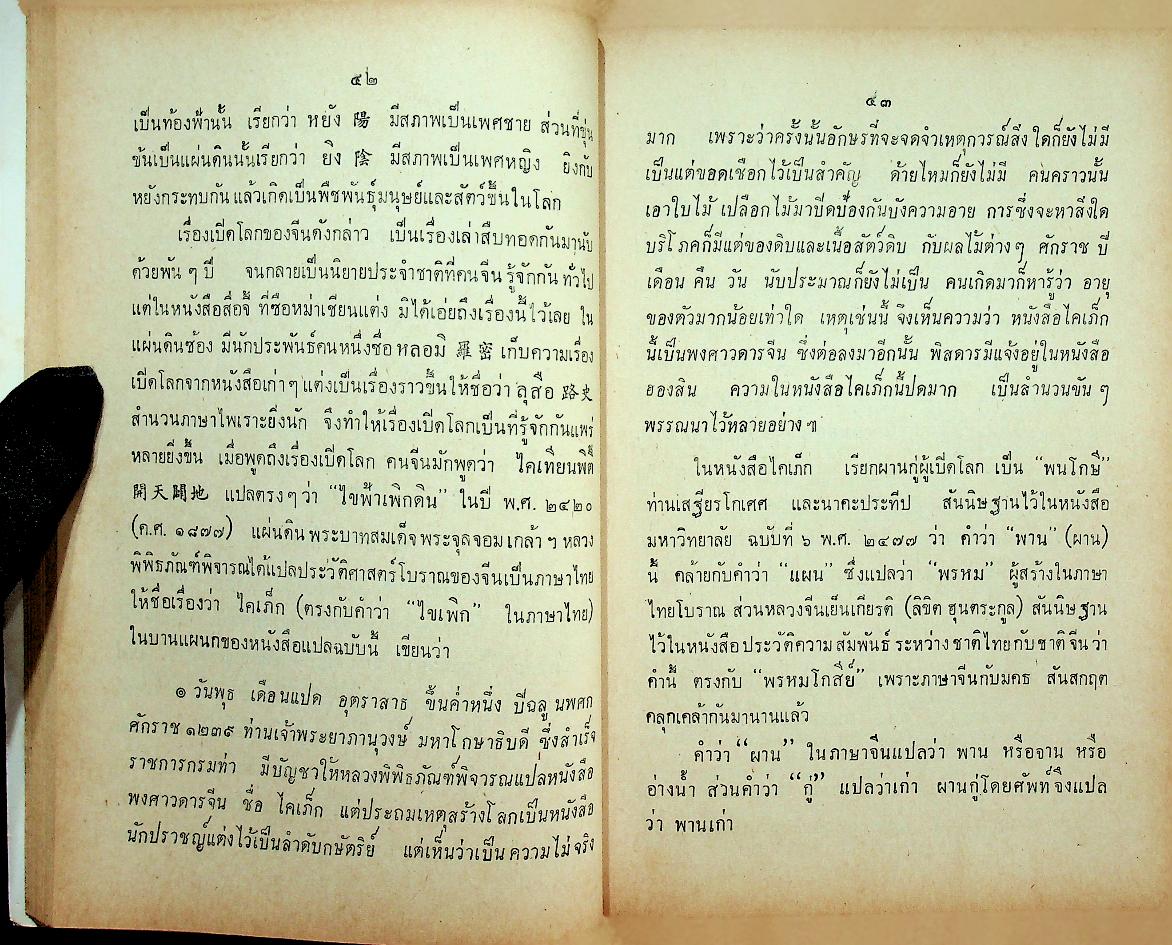 ๕๒
เป็นท้องฟ้านั้น เรียกว่า หยัง 陽 มีสภาพเป็นเพศชาย ส่วนที่ขุ่น
ข้นเป็นแผ่นดินนั้นเรียกว่า ยิง 陰 มีสภาพเป็นเพศหญิง ยิงกับ
หยังกระทบกัน แล้วเกิดเป็นพืชพันธุ์มนุษย์และสัตว์ขึ้นในโลก
เรื่องเปิดโลกของจีนดังกล่าว เป็นเรื่องเล่าสืบทอดกันมานับ
ด้วยพัน ๆ ปี จนกลายเป็นนิยายประจำชาติที่คนจีนรู้จักกันทั่วไป
แต่ในหนังสือสื่อจี้ ที่ซือหม่าเชียนแต่ง มิได้เอ่ยถึงเรื่องนี้ไว้เลย ใน
แผ่นดินซ้อง มีนักประพันธ์คนหนึ่งชื่อ หลอมิ 羅密 เก็บความเรื่อง
เปิดโลกจากหนังสือเก่า ๆ แต่งเป็นเรื่องราวขึ้นให้ชื่อว่า ลุสือ 路史
สำนวนภาษาไพเราะยิ่งนัก จึงทำให้เรื่องเปิดโลกเป็นที่รู้จักกันแพร่
หลายยิ่งขึ้น เมื่อพูดถึงเรื่องเปิดโลก คนจีนมักพูดว่า ไคเทียนพิตี้
開天闢地 แปลตรงๆ ว่า “ไขฟ้าเพิกดิน” ในปี พ.ศ. ๒๔๒๐
(ค.ศ. ๑๘๗๗) แผ่นดินพระบาทสมเด็จพระจุลจอมเกล้า ฯ หลวง
พิพิธภัณฑ์พิจารณได้แปลประวัติศาสตร์โบราณของจีนเป็นภาษาไทย
ให้ชื่อเรื่องว่า ไคเภ็ก (ตรงกับคำว่า “ไขเพิก” ในภาษาไทย)
ในบานแผนกของหนังสือแปลฉบับนี้ เขียนว่า
๏ วันพุธ เดือนแปด อุตราสาธ ขึ้นค่ำหนึ่ง ปีฉลู นพศก
ศักราช ๑๒๓๙ ท่านเจ้าพระยาภานุวงษ์ มหาโกษาธิบดี ซึ่งสำเร็จ
ราชการกรมท่า มีบัญชาให้หลวงพิพิธภัณฑ์พิจารณแปลหนังสือ
พงศาวดารจีน ชื่อ ไคเภ็ก แต่ประถมเหตุสร้างโลกเป็นหนังสือ
นักปราชญ์แต่งไว้เป็นลำดับกษัตริย์ แต่เห็นว่าเป็นความไม่จริง
๕๓
มาก เพราะว่าครั้งนั้นอักษรที่จะจดจำเหตุการณ์สิ่งใดก็ยังไม่มี
เป็นแต่ขอดเชือกไว้เป็นสำคัญ ด้ายไหมก็ยังไม่มี คนคราวนั้น
เอาใบไม้ เปลือกไม้มาปิดป้องกันบังความอาย การซึ่งจะหาสิ่งใด
บริโภคก็มีแต่ของดิบและเนื้อสัตว์ดิบ กับผลไม้ต่างๆ ศักราช ปี
เดือน คืน วัน นับประมาณก็ยังไม่เป็น คนเกิดมาก็หารู้ว่า อายุ
ของตัวมากน้อยเท่าใด เหตุเช่นนี้ จึงเห็นความว่า หนังสือไคเภ็ก
นี้เป็นพงศาวดารจีน ซึ่งต่อลงมาอีกนั้น พิสดารมีแจ้งอยู่ในหนังสือ
ฮองสิน ความในหนังสือไคเภ็กนี้ปดมาก เป็นสำนวนขัน ๆ
พรรณนาไว้หลายอย่าง ฯ
ในหนังสือไคเภ็ก เรียกผานกู่ผู้เปิดโลก เป็น “พนโกษี”
ท่านเสฐียรโกเศศ และนาคะประทีป สันนิษฐานไว้ในหนังสือ
มหาวิทยาลัย ฉบับที่ ๖ พ.ศ. ๒๔๗๗ ว่า คำว่า “พาน” (ผาน)
นี้ คล้ายกับคำว่า “แผน” ซึ่งแปลว่า “พรหม” ผู้สร้างในภาษา
ไทยโบราณ ส่วนหลวงจีนเย็นเกียรติ (ลิขิต ฮุนตระกูล) สันนิษฐาน
ไว้ในหนังสือประวัติความสัมพันธ์ระหว่างชาติไทยกับชาติจีน ว่า
คำนี้ ตรงกับ “พรหมโกสีย์” เพราะภาษาจีนกับมคธ สันสกฤต
คลุกเคล้ากันมานานแล้ว
คำว่า “ผาน” ในภาษาจีนแปลว่า พาน หรือจาน หรือ
อ่างน้ำ ส่วนคำว่า “กู่” แปลว่าเก่า ผานกู่โดยศัพท์จึงแปล
ว่า พานเก่า